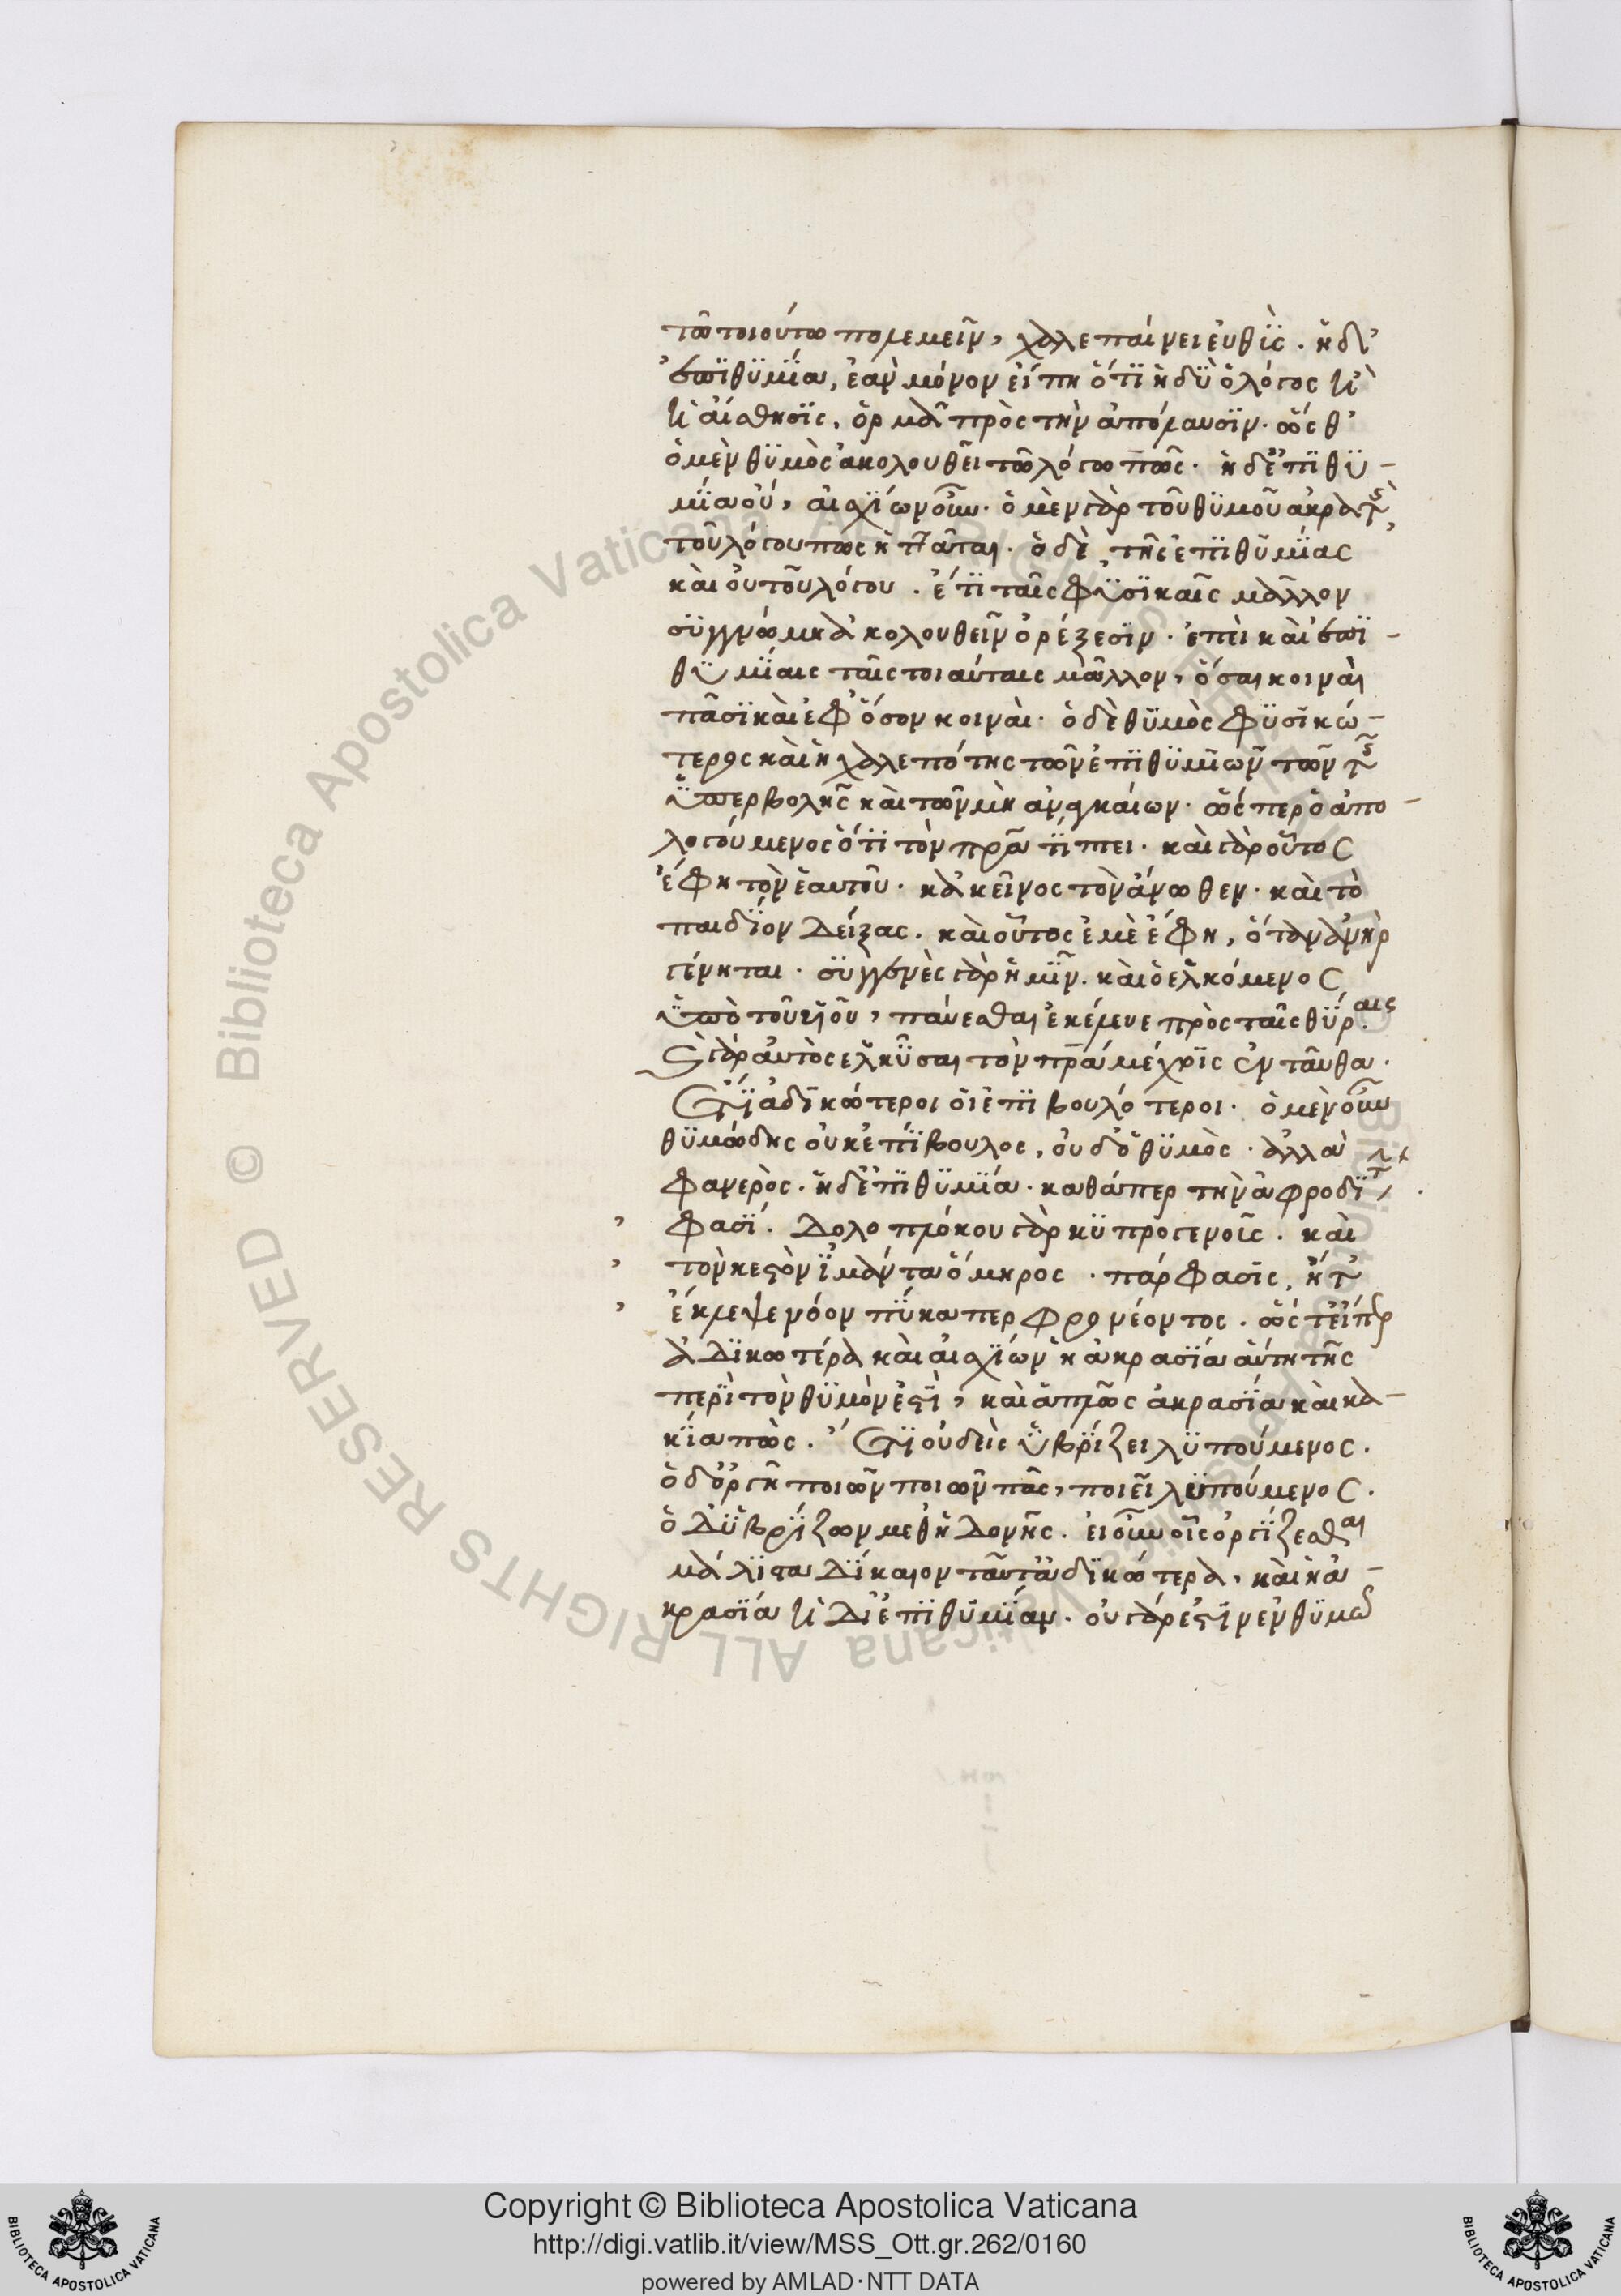 τῶ τοιούτω πολεμεῖν, χαλεπαίνει εὐθὺς. ἡ δ'
ἐπιθυμία, ἐὰν μόνον εἴπη ὅτι ἡδὺ ὁ λόγος ἢ
ἢ αἴσθησις, ὁρμᾶ πρὸς τὴν ἀπόλαυσιν. ὥσθ'
ὁ μὲν θυμὸς ἀκολουθεῖ τῶ λόγω πῶς. ἡ δ' ἐπιθυ-
μία οὔ, αἰσχίων οὖν. ὁ μὲν γὰρ τοῦ θυμοῦ ἀκρατὴς
τοῦ λόγου πως ἡττᾶται. ὁ δὲ, τῆς ἐπιθυμίας
καὶ οὐ τοῦ λόγου. ἔτι ταῖς φυσικαῖς μᾶλλον
συγγνώμη ἀκολουθεῖν ὀρέξεσιν. ἐπεὶ καὶ ἐπι-
θυμίαις ταῖς τοιαύταις μᾶλλον, ὅσαι κοιναὶ
πᾶσι καὶ ἐφ' ὅσον κοιναὶ. ὁ δὲ θυμὸς φυσικώ-
τερος καὶ ἡ χαλεπότης τῶν ἐπιθυμιῶν τῶν τῆς
ὑπερβολῆς καὶ τῶν μὴ ἀναγκαίων. ὥσπερ ὁ ἀπο-
λογούμενος ὅτι τὸν πρα τύπτει. καὶ γὰρ οὗτος
ἔφη τὸν ἑαυτοῦ. κἀκεῖνος τὸν ἄνωθεν. καὶ τὸ
παιδίον δείξας. καὶ οὗτος ἐμὲ ἔφη, ὅταν ἀνὴρ
γένηται. συγγενὲς γὰρ ἡμῖν. καὶ ὁ ἑλκόμενος
ὑπὸ τοῦ υἱοῦ, παύεσθαι ἐκέλευε πρὸς ταῖς θύραις.
καὶ γὰρ αὐτὸς ἑλκῦσαι τὸν πρα μέχρις ἐνταῦθα.
ἔτι ἀδικώτεροι οἱ ἐπιβουλότεροι. ὁ μὲν οὖν
θυμώδης οὐκ ἐπίβουλος, οὐδ' ὁ θυμὸς. ἀλλὰ
φανερὸς. ἡ δ' ἐπιθυμία. καθάπερ τὴν ἀφροδίτην
φασί. δολοπλόκου γὰρ κυπρογενοῖς. καὶ
τὸν κεστὸν ἱμάντα ὅμηρος. πάρφασις, ἥ τ'
ἔκλεψε νόον πύκα περ φρονέοντος. ὥστ' εἴπερ
ἀδικωτέρα καὶ αἰσχίων ἡ ἀκρασία αὕτη τῆς
περὶ τὸν θυμόν ἐστὶ, καὶ ἁπλῶς ἀκρασία καὶ κα-
κία πὼς. ἔτι οὐδεὶς ὑβρίζει λυπούμενος.
ὁ δ' ὀργῆ ποιῶν ποιῶν πᾶς, ποιεῖ λυπούμενος.
ὁ δ' ὑβρίζων μεθ' ἡδονῆς. εἰ οὖν οἷς ὀργίζεσθαι
μάλιστα δίκαιον ταῦτα ἀδικώτερα, καὶ ἡ ἀ-
κρασία ἡ δι' ἐπιθυμίαν. οὐ γάρ ἐστιν ἐν θυμῶ
Copyright © Biblioteca Apostolica Vaticana
http://digi.vatlib.it/view/MSS_Ott.gr.262/0160
powered by AMLAD·NTT DATA